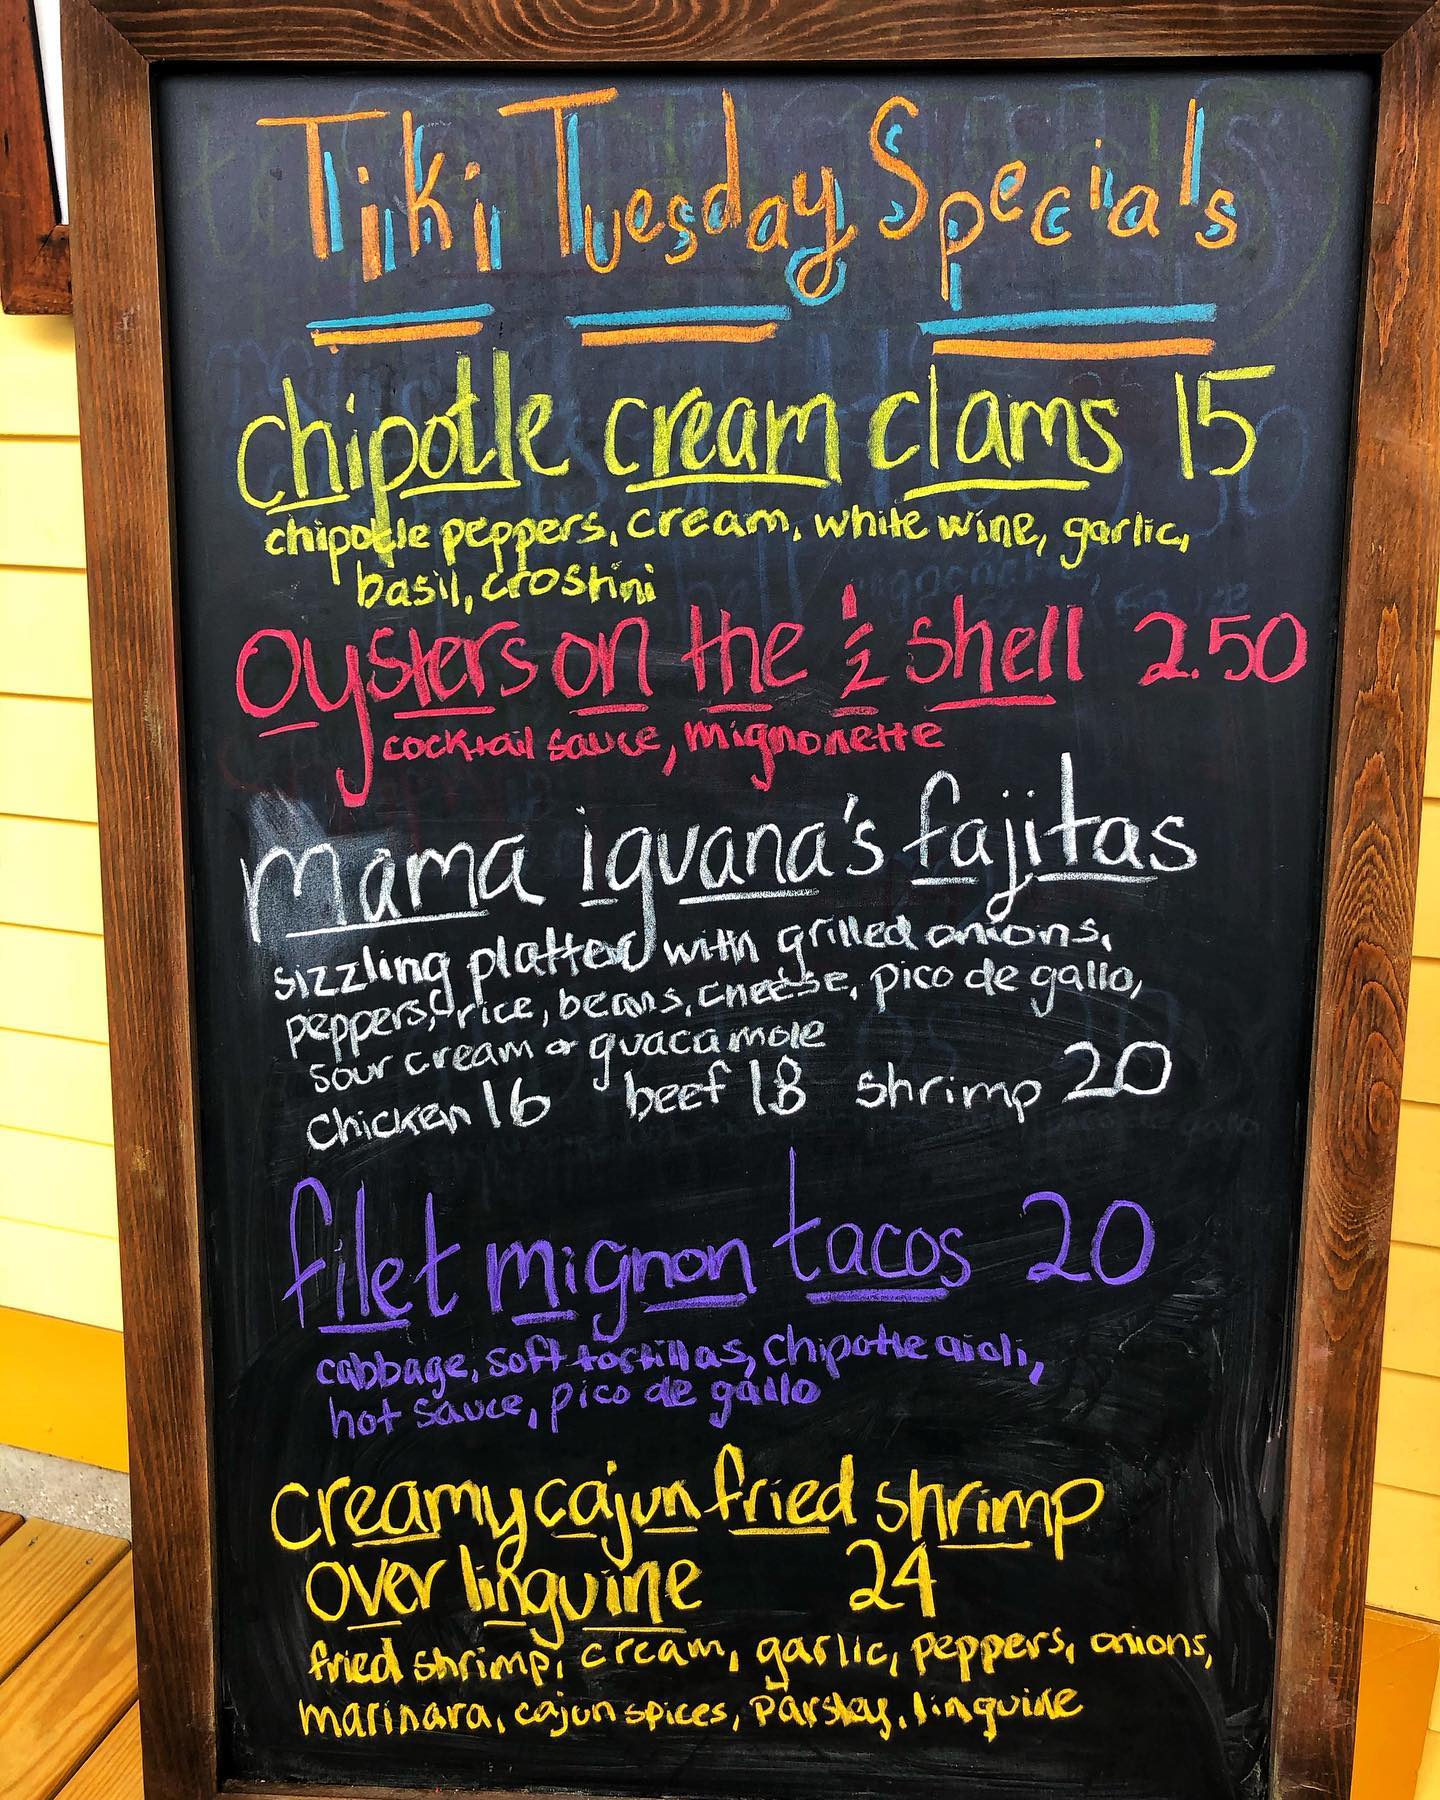 Tiki Tuesday Specials
chipotle cream clams 15
chipotle peppers, cream, white wine, garlic,
basil, crostini
oysters on the 1/2 shell 2.50
cocktail sauce, mignonette
Mama iguana's fajitas
sizzling platter with grilled onions,
peppers, rice, beans, cheese, pico de gallo,
sour cream or guacamole
chicken 16 beef 18 shrimp 20
filet mignon tacos 20
cabbage, soft tortillas, chipotle aioli,
hot sauce, pico de gallo
creamy cajun fried shrimp
over linguine 24
fried shrimp, cream, garlic, peppers, onions,
marinara, cajun spices, parsley, linguine